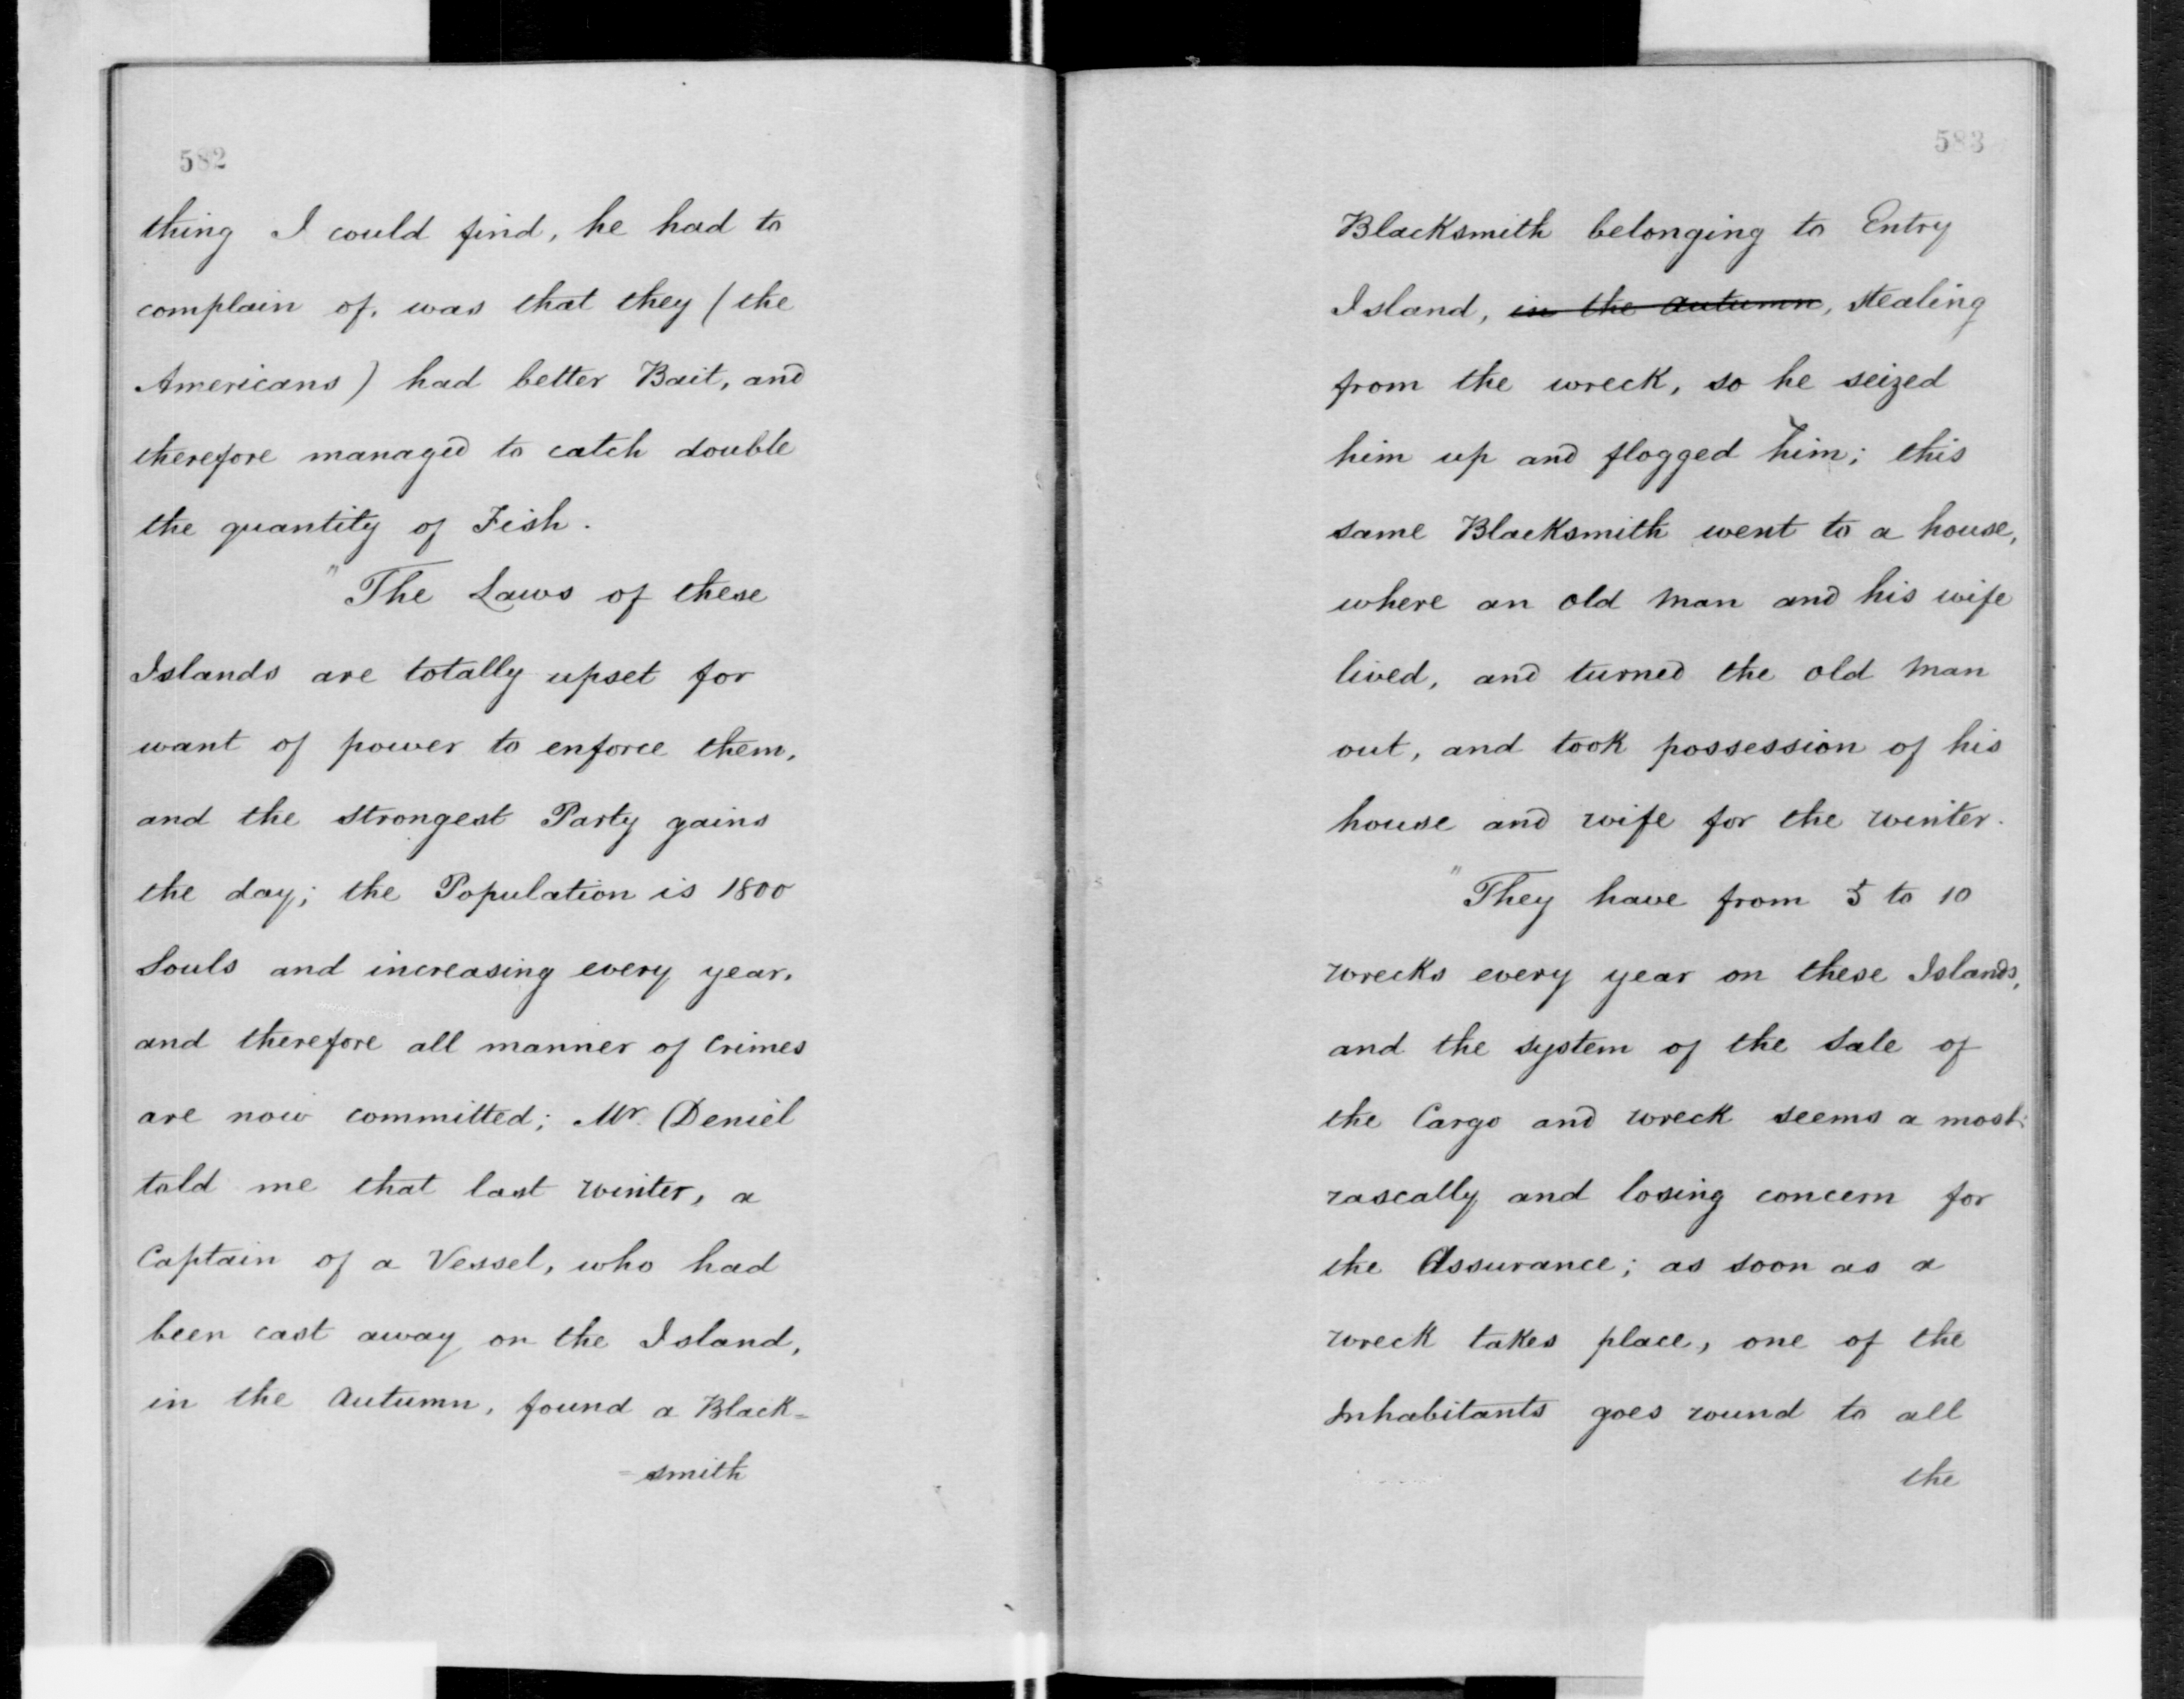 582
thing I could find, he had to
complain of, was that they (the
Americans) had better Bait, and
therefore managed to catch double
the quantity of Fish.
"The Laws of these
Islands are totally upset for
want of power to enforce them,
and the strongest Party gains
the day; the Population is 1800
Souls and increasing every year,
and therefore all manner of Crimes
are now committed; Mr. Deniel
told me that last winter, a
Captain of a Vessel, who had
been cast away on the Island,
in the Autumn, found a Black=
=smith
583
Blacksmith belonging to Entry
Island, in the autumn, stealing
from the wreck, so he seized
him up and flogged him; this
same Blacksmith went to a house,
where an old man and his wife
lived, and turned the old man
out, and took possession of his
house and wife for the winter.
"They have from 5 to 10
wrecks every year on these Islands,
and the system of the Sale of
the Cargo and wreck seems a most
rascally and losing concern for
the Assurance; as soon as a
wreck takes place, one of the
Inhabitants goes round to all
the